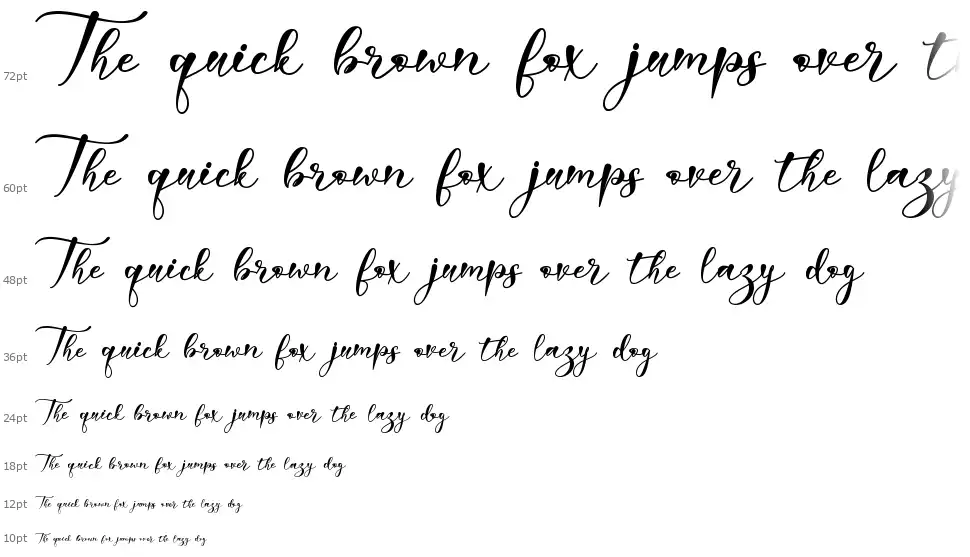 72pt The quick brown fox jumps over
60pt The quick brown fox jumps over the lazy
48pt The quick brown fox jumps over the lazy dog
36pt The quick brown fox jumps over the lazy dog
24pt The quick brown fox jumps over the lazy dog
18pt The quick brown fox jumps over the lazy dog
12pt The quick brown fox jumps over the lazy dog
10pt The quick brown fox jumps over the lazy dog